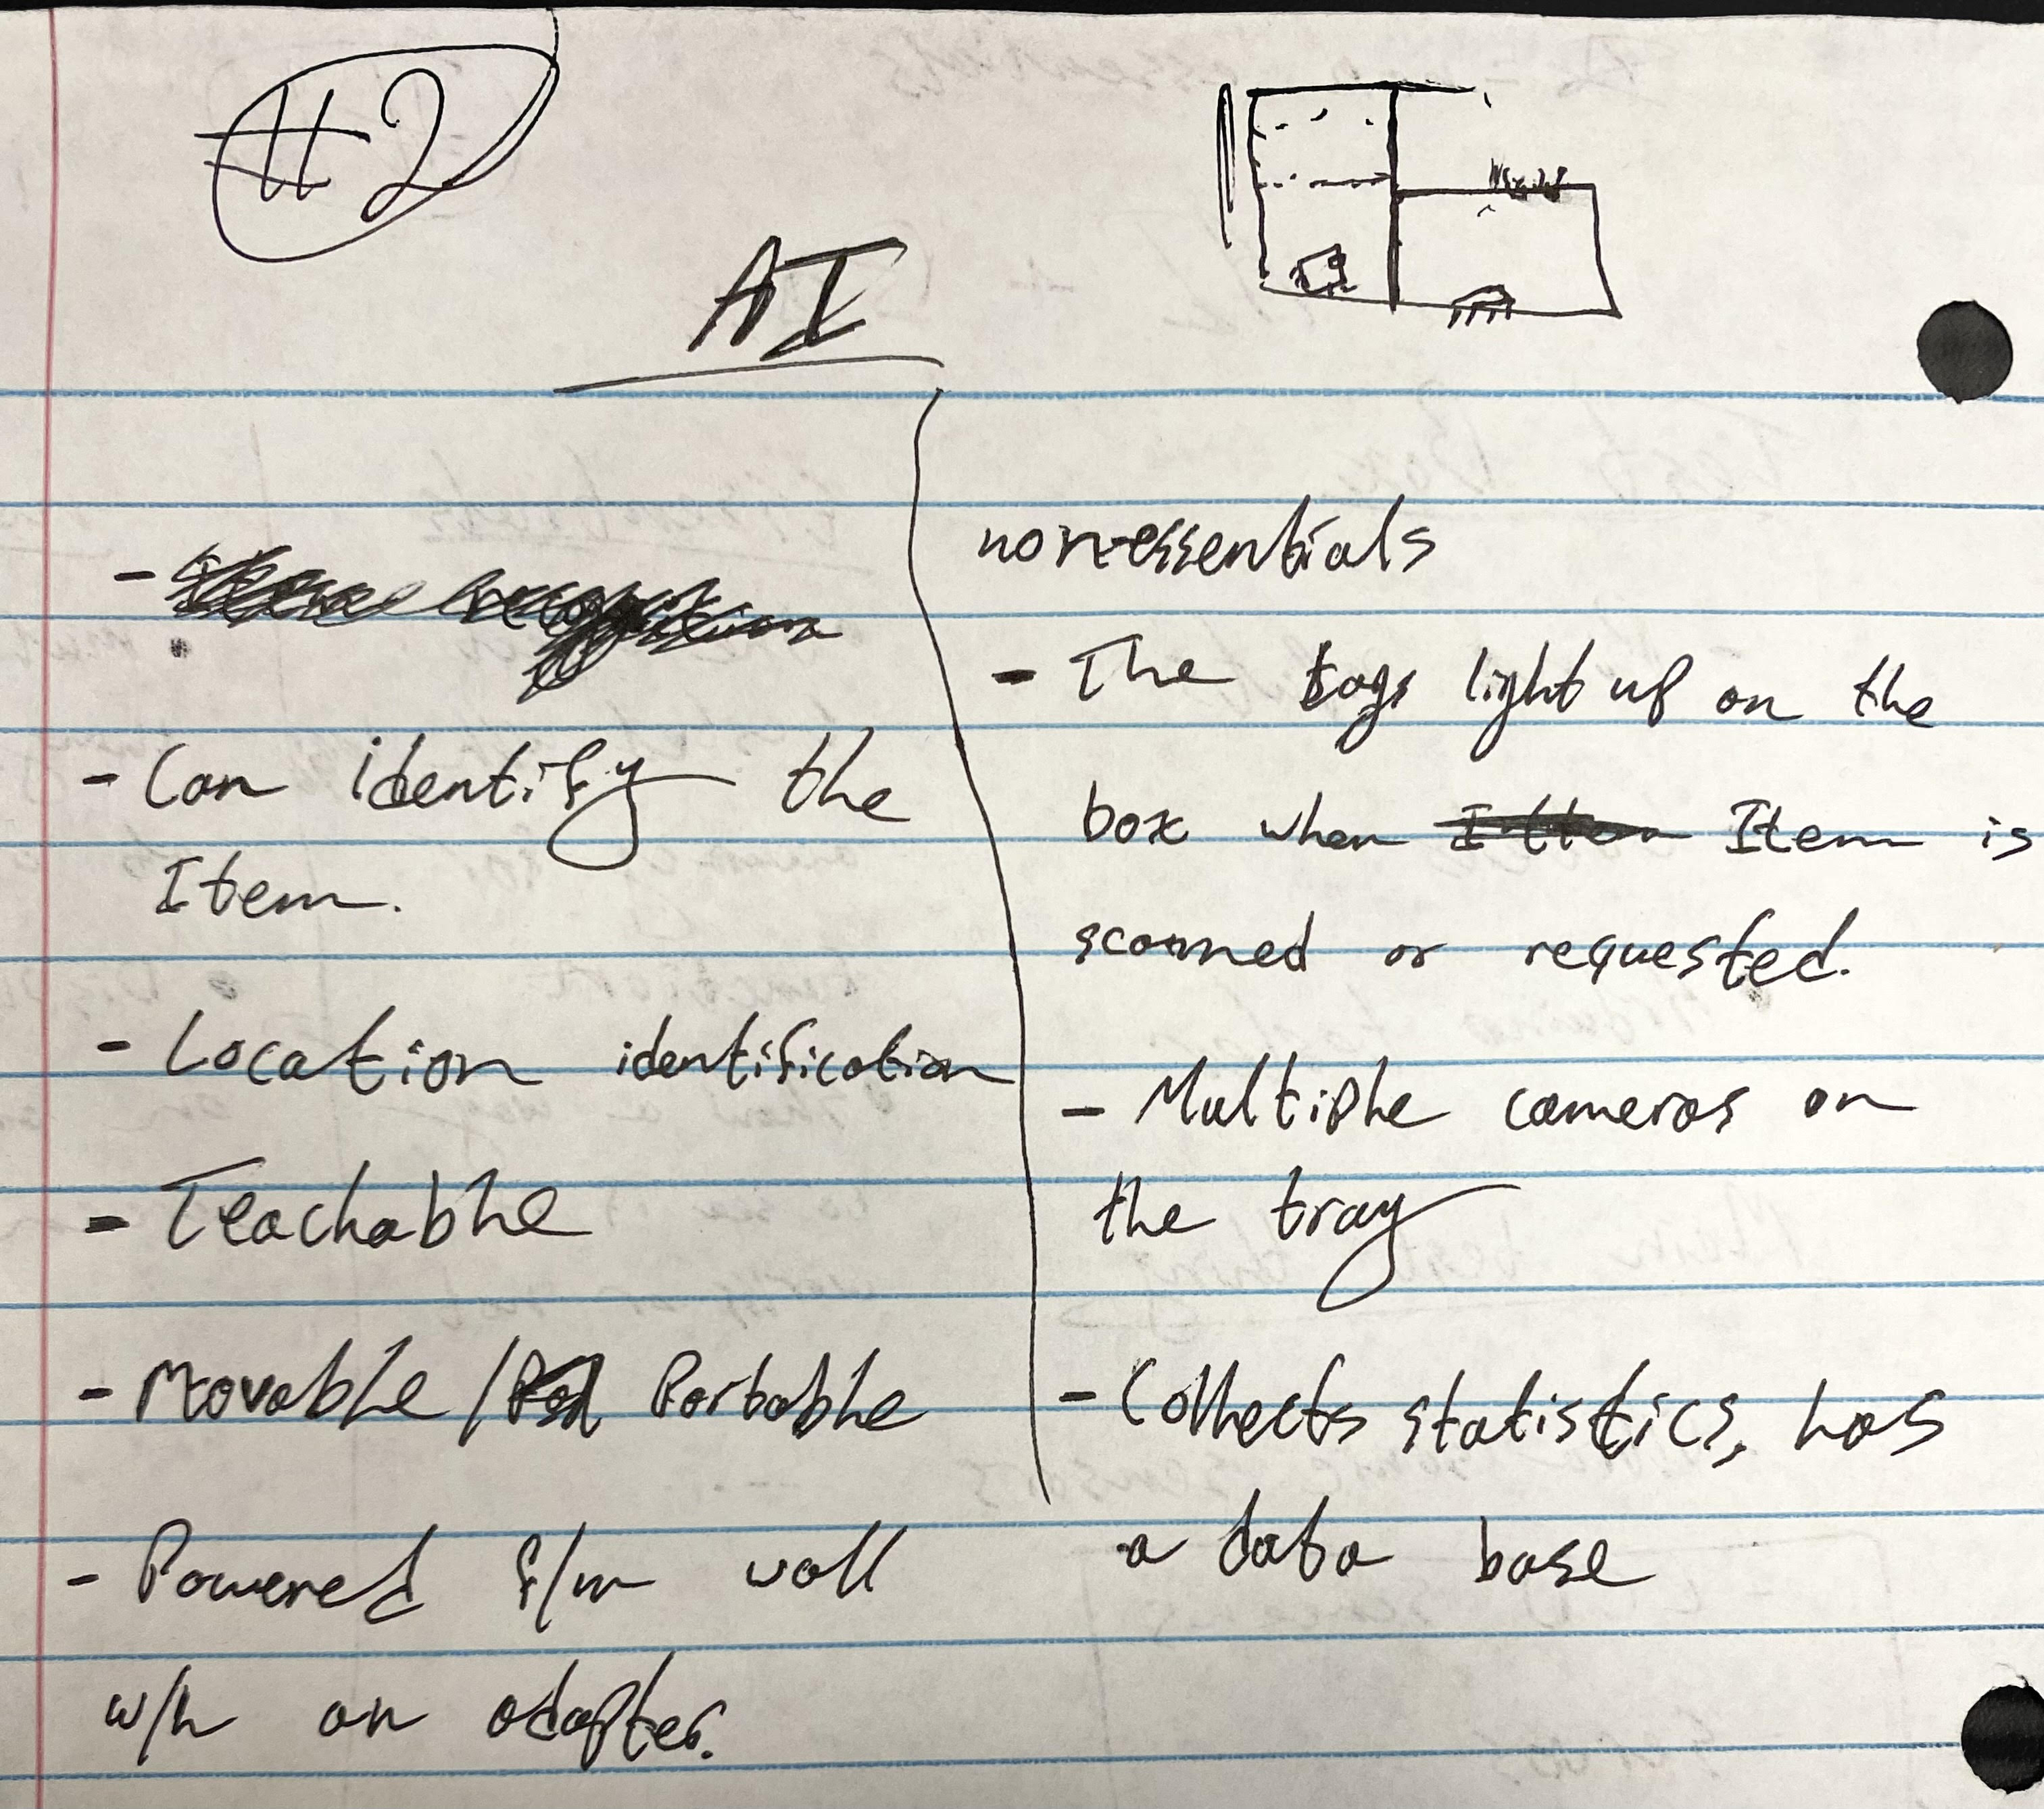 #2
AI
- Can identify the
Item.
- Location identification
- Teachable
- Movable / Portable
- Powered f/m wall
w/h an adapter.
non-essentials
- The tags light up on the
box when Item is
scanned or requested.
- Multiple cameras on
the tray
- Collects statistics, has
a data base